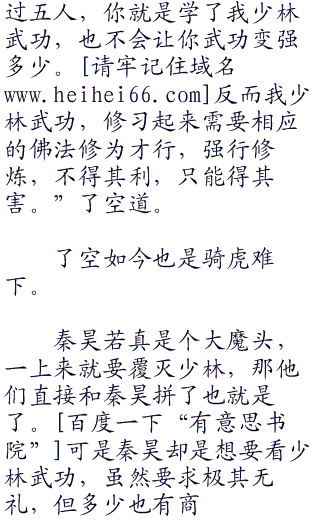 过五人，你就是学了我少林
武功，也不会让你武功变强
多少。[请牢记住域名
www.heihei66.com]反而我少
林武功，修习起来需要相应
的佛法修为才行，强行修
炼，不得其利，只能得其
害。”了空道。
了空如今也是骑虎难
下。
秦昊若真是个大魔头，
一上来就要覆灭少林，那他
们直接和秦昊拼了也就是
了。[百度一下“有意思书
院”]可是秦昊却是想要看少
林武功，虽然要求极其无
礼，但多少也有商